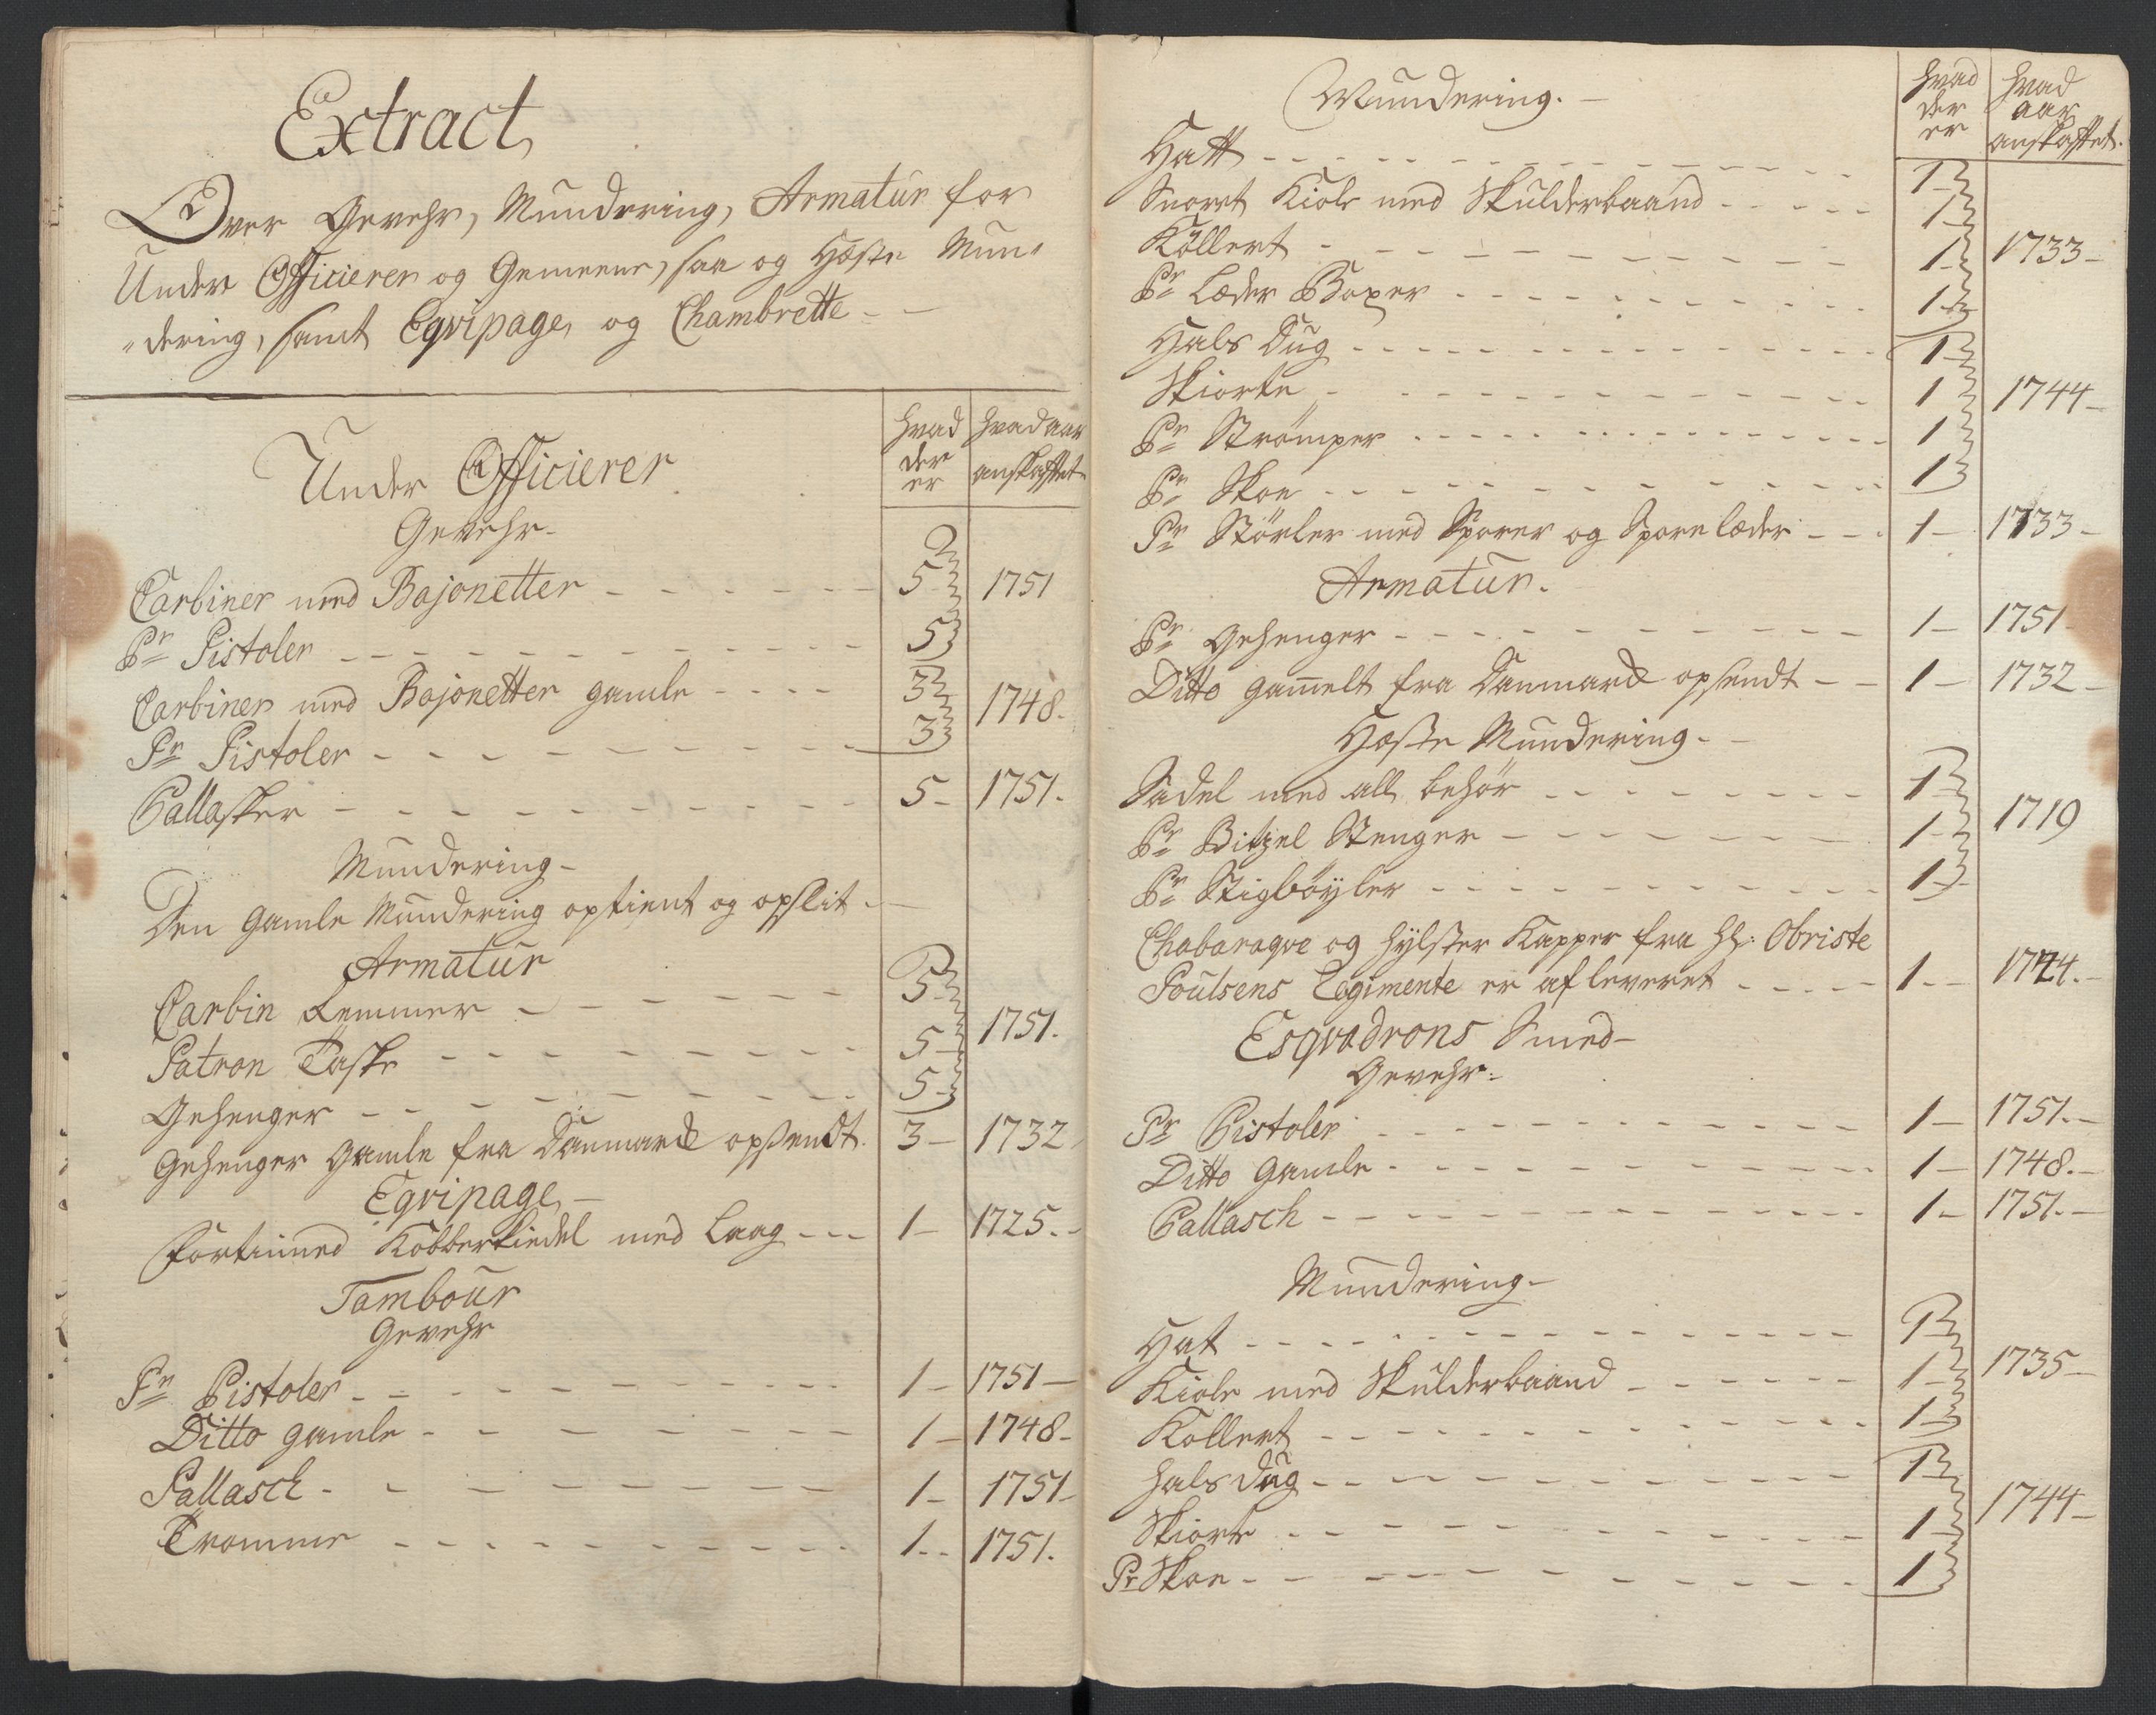 Extract
Over Gevehr, Mundering, Armatur for
Under Officierer og Gemeene, saa og Hæste Mun-
dering, samt Eqvipage, og Chambrette
hvad der er
hvad aar anskaffet
Under Officierer
Gevehr
Carbiner med Bajonetter 5 1751
Pr Pistoler 5
Carbiner med Bajonetter gamle 3 1748.
Pr Pistoler 3
Pallasker 5 1751.
Mundering
Den gamle Mundering optient og opslit
Armatur
Carbin Remmer 5
Patron Taske 5 1751.
Gehenger 5
Gehenger gamle fra Danmark opsendt. 3 1732
Eqvipage
Fortinned Kobberkiedel med Laag 1 1725.
Tambour
Gevehr
Pr Pistoler 1 1751
Ditto gamle 1 1748
Pallasch 1 1751
Tromme 1 1751.
Mundering.
hvad der er
hvad aar anskaffet.
Hatt 1
Snoret Kiole med Skulderbaand 1
Köllert 1 1733
Pr Læder Boxer 1
Hals Dug 1
Skiorte 1 1744
Pr Strømper 1
Pr Skoe 1
Pr Støvler med Sporer og Sporelæder 1 1733
Armatur.
Pr Gehenger 1 1751
Ditto gammelt fra Danmark opsendt 1 1732
Hæste Mundering
Sadel med all behør 1
Pr Bitzel Stenger 1 1719
Pr Stigbøyler 1
Chabaraqve og hylster Kapper fra Hr: Obriste
Poulsens Regimente er afleveret 1 1744.
Esqvadrons Smed
Gevehr
Pr Pistoler 1 1751.
Ditto gamle 1 1748.
Pallasch 1 1751.
Mundering
Hat 1
Kiole med Skulderbaand 1 1735
Kollert 1
hals dug 1
Skiorte 1 1744
Pr Skoe 1